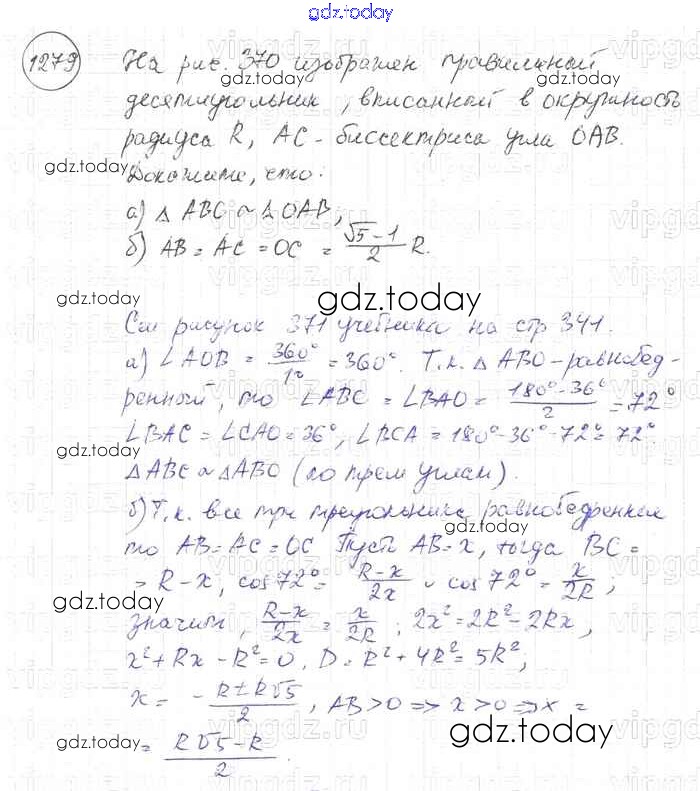 gdz.today
1279 На рис. 370 изображен правильный
десятиугольник, вписанный в окружность
радиуса R, AC - биссектриса угла OAB.
Докажите, что:
а) △ ABC ~ △ OAB;
б) AB = AC = OC = (√5 - 1)/2 R.
См рисунок 371 учебника на стр 341.
а) ∠AOB = 360°/10 = 360°. Т.к. △ ABO - равнобед-
ренный, то ∠ABC = ∠BAO = (180° - 36°)/2 = 72°
∠BAC = ∠CAO = 36°, ∠BCA = 180° - 36° - 72° = 72°
△ABC ~ △ABO (по трем углам).
б) Т.к. все три треугольника равнобедренные
то AB = AC = OC Пусть AB = x, тогда BC =
= R - x, cos 72° = (R-x)/2x и cos 72° = x/2R;
значит, (R-x)/2x = x/2R; 2x² = 2R² - 2Rx,
x² + Rx - R² = 0, D = R² + 4R² = 5R²;
x = (-R ± R√5)/2, AB > 0 => x > 0 => x =
= (R√5 - R)/2.